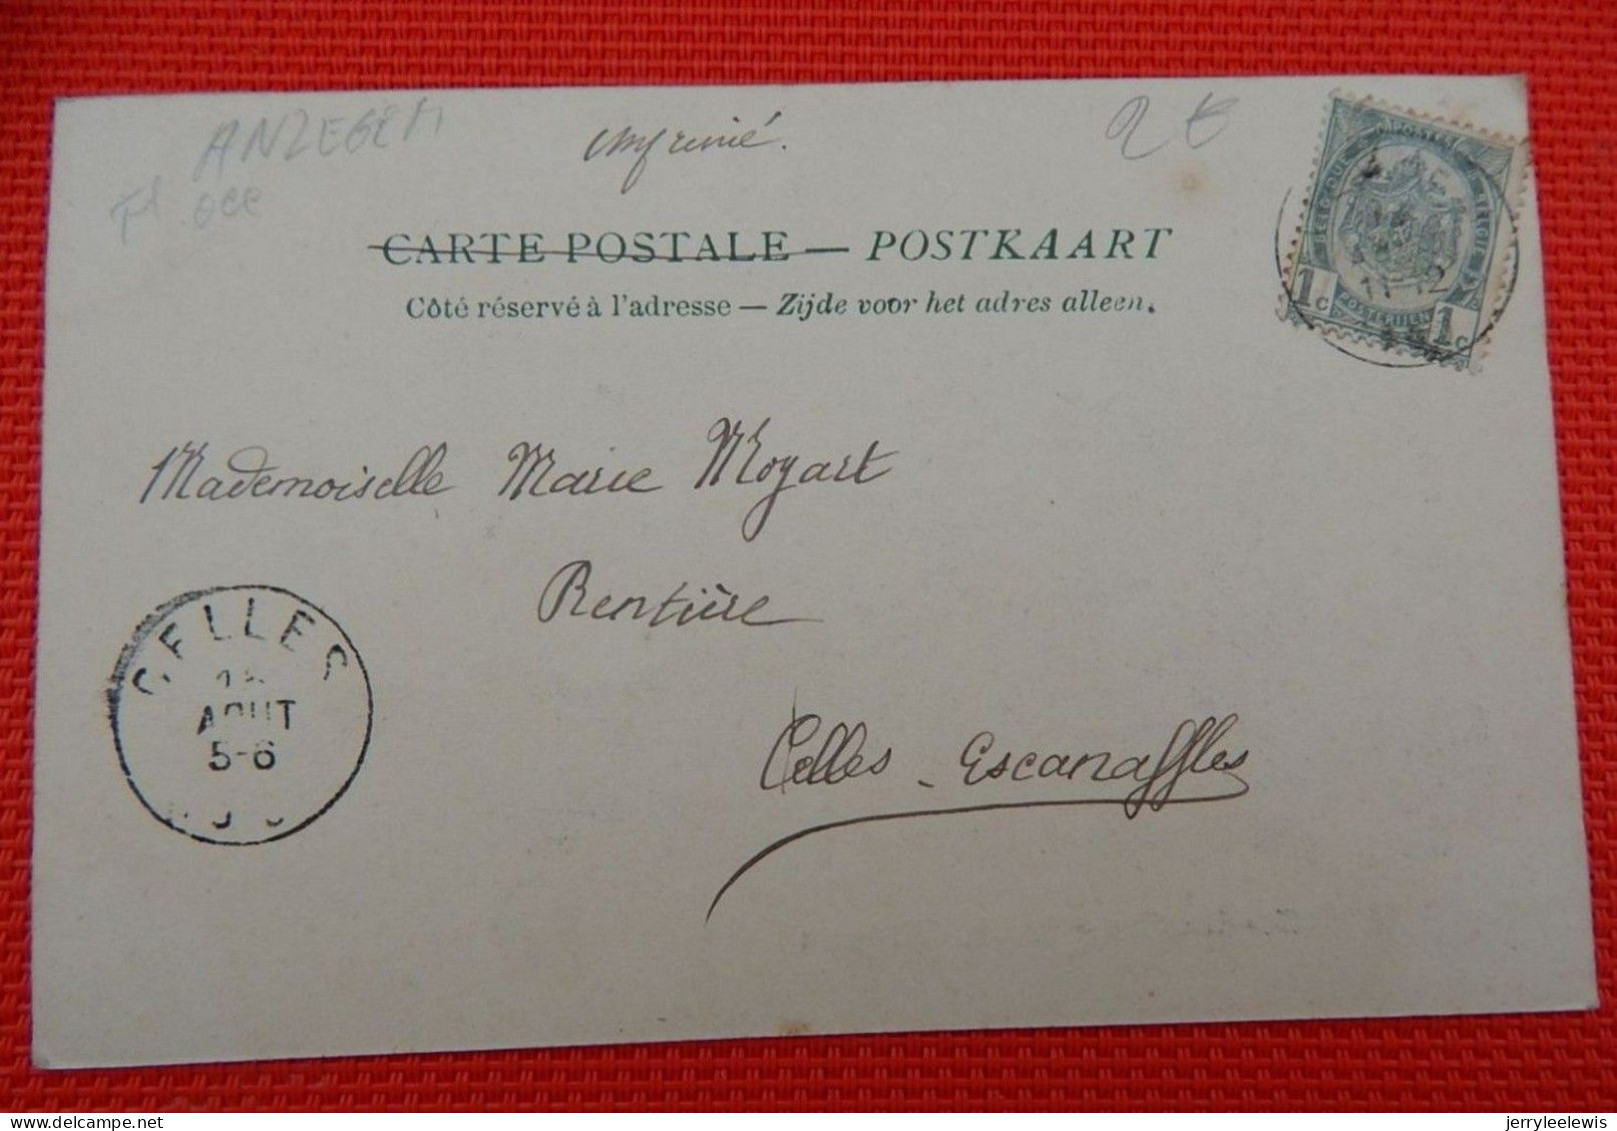 ANZEGEM
Fl. occ
Imprimé.
2 €
CARTE POSTALE — POSTKAART
Côté réservé à l'adresse — Zijde voor het adres alleen.
BELGIQUE
POSTERIJEN
1c 1c
11-12
Mademoiselle Marie Moyart
Rentière
CELLES
AOUT
5-6
Celles - Escanaffles
jerryleelewis